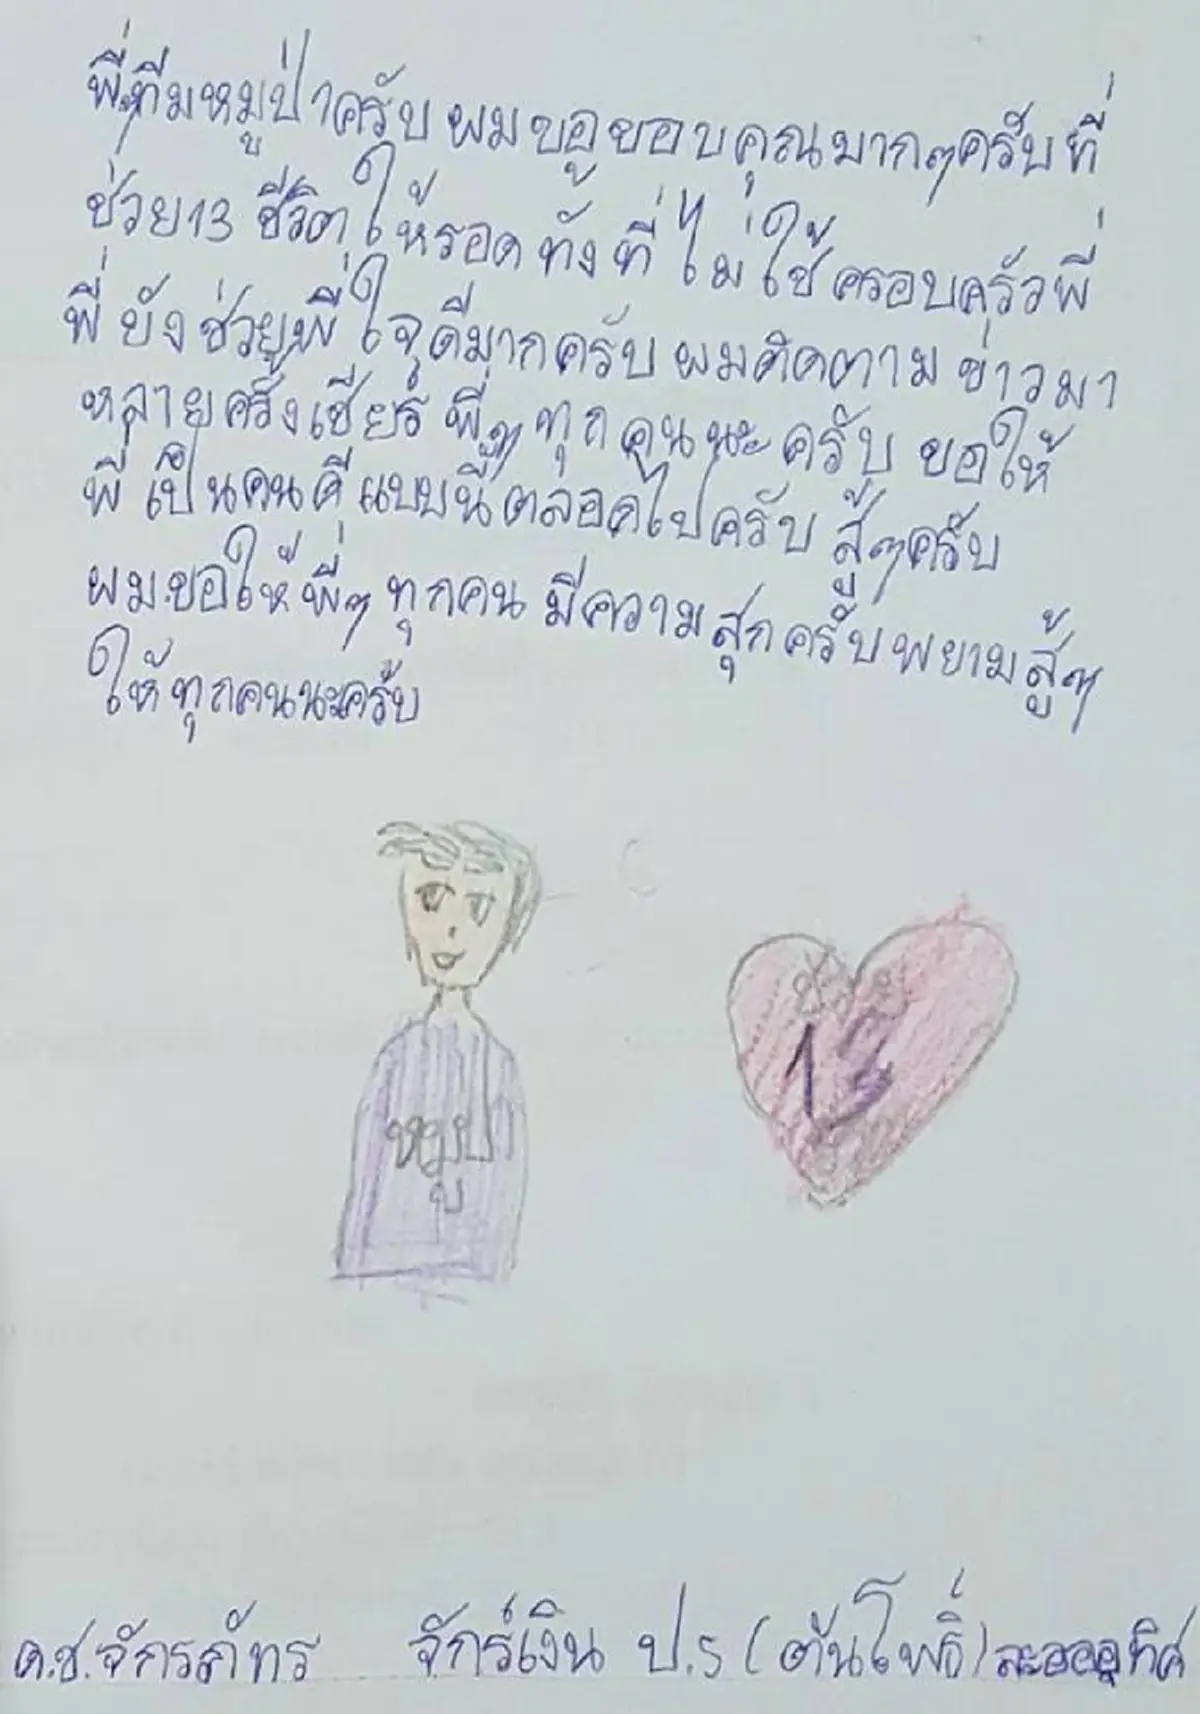 พี่ๆทีมหมูป่าครับ ผมขอขอบคุณมากๆครับที่
ช่วย13 ชีวิตให้รอด ทั้งที่ ไม่ใช้ครอบครัวพี่
พี่ ยังช่วยพี่ใจดีมากครับ ผมติดตาม ข่าวมา
หลายครั้งเชียร์ พี่ๆ ทุกคนนะครับ ขอให้
พี่ เป็นคนดี แบบนี้ตลอดไปครับ สู้ๆครับ
ผมขอให้พี่ๆ ทุกคน มีความสุกครับพยามสู้ๆ
ให้ทุกคนนะครับ
หมูป่า
13
ด.ช.จักรภัทร จักร์เงิน ป.5 (ต้นโพธิ์) ละอออุทิศ